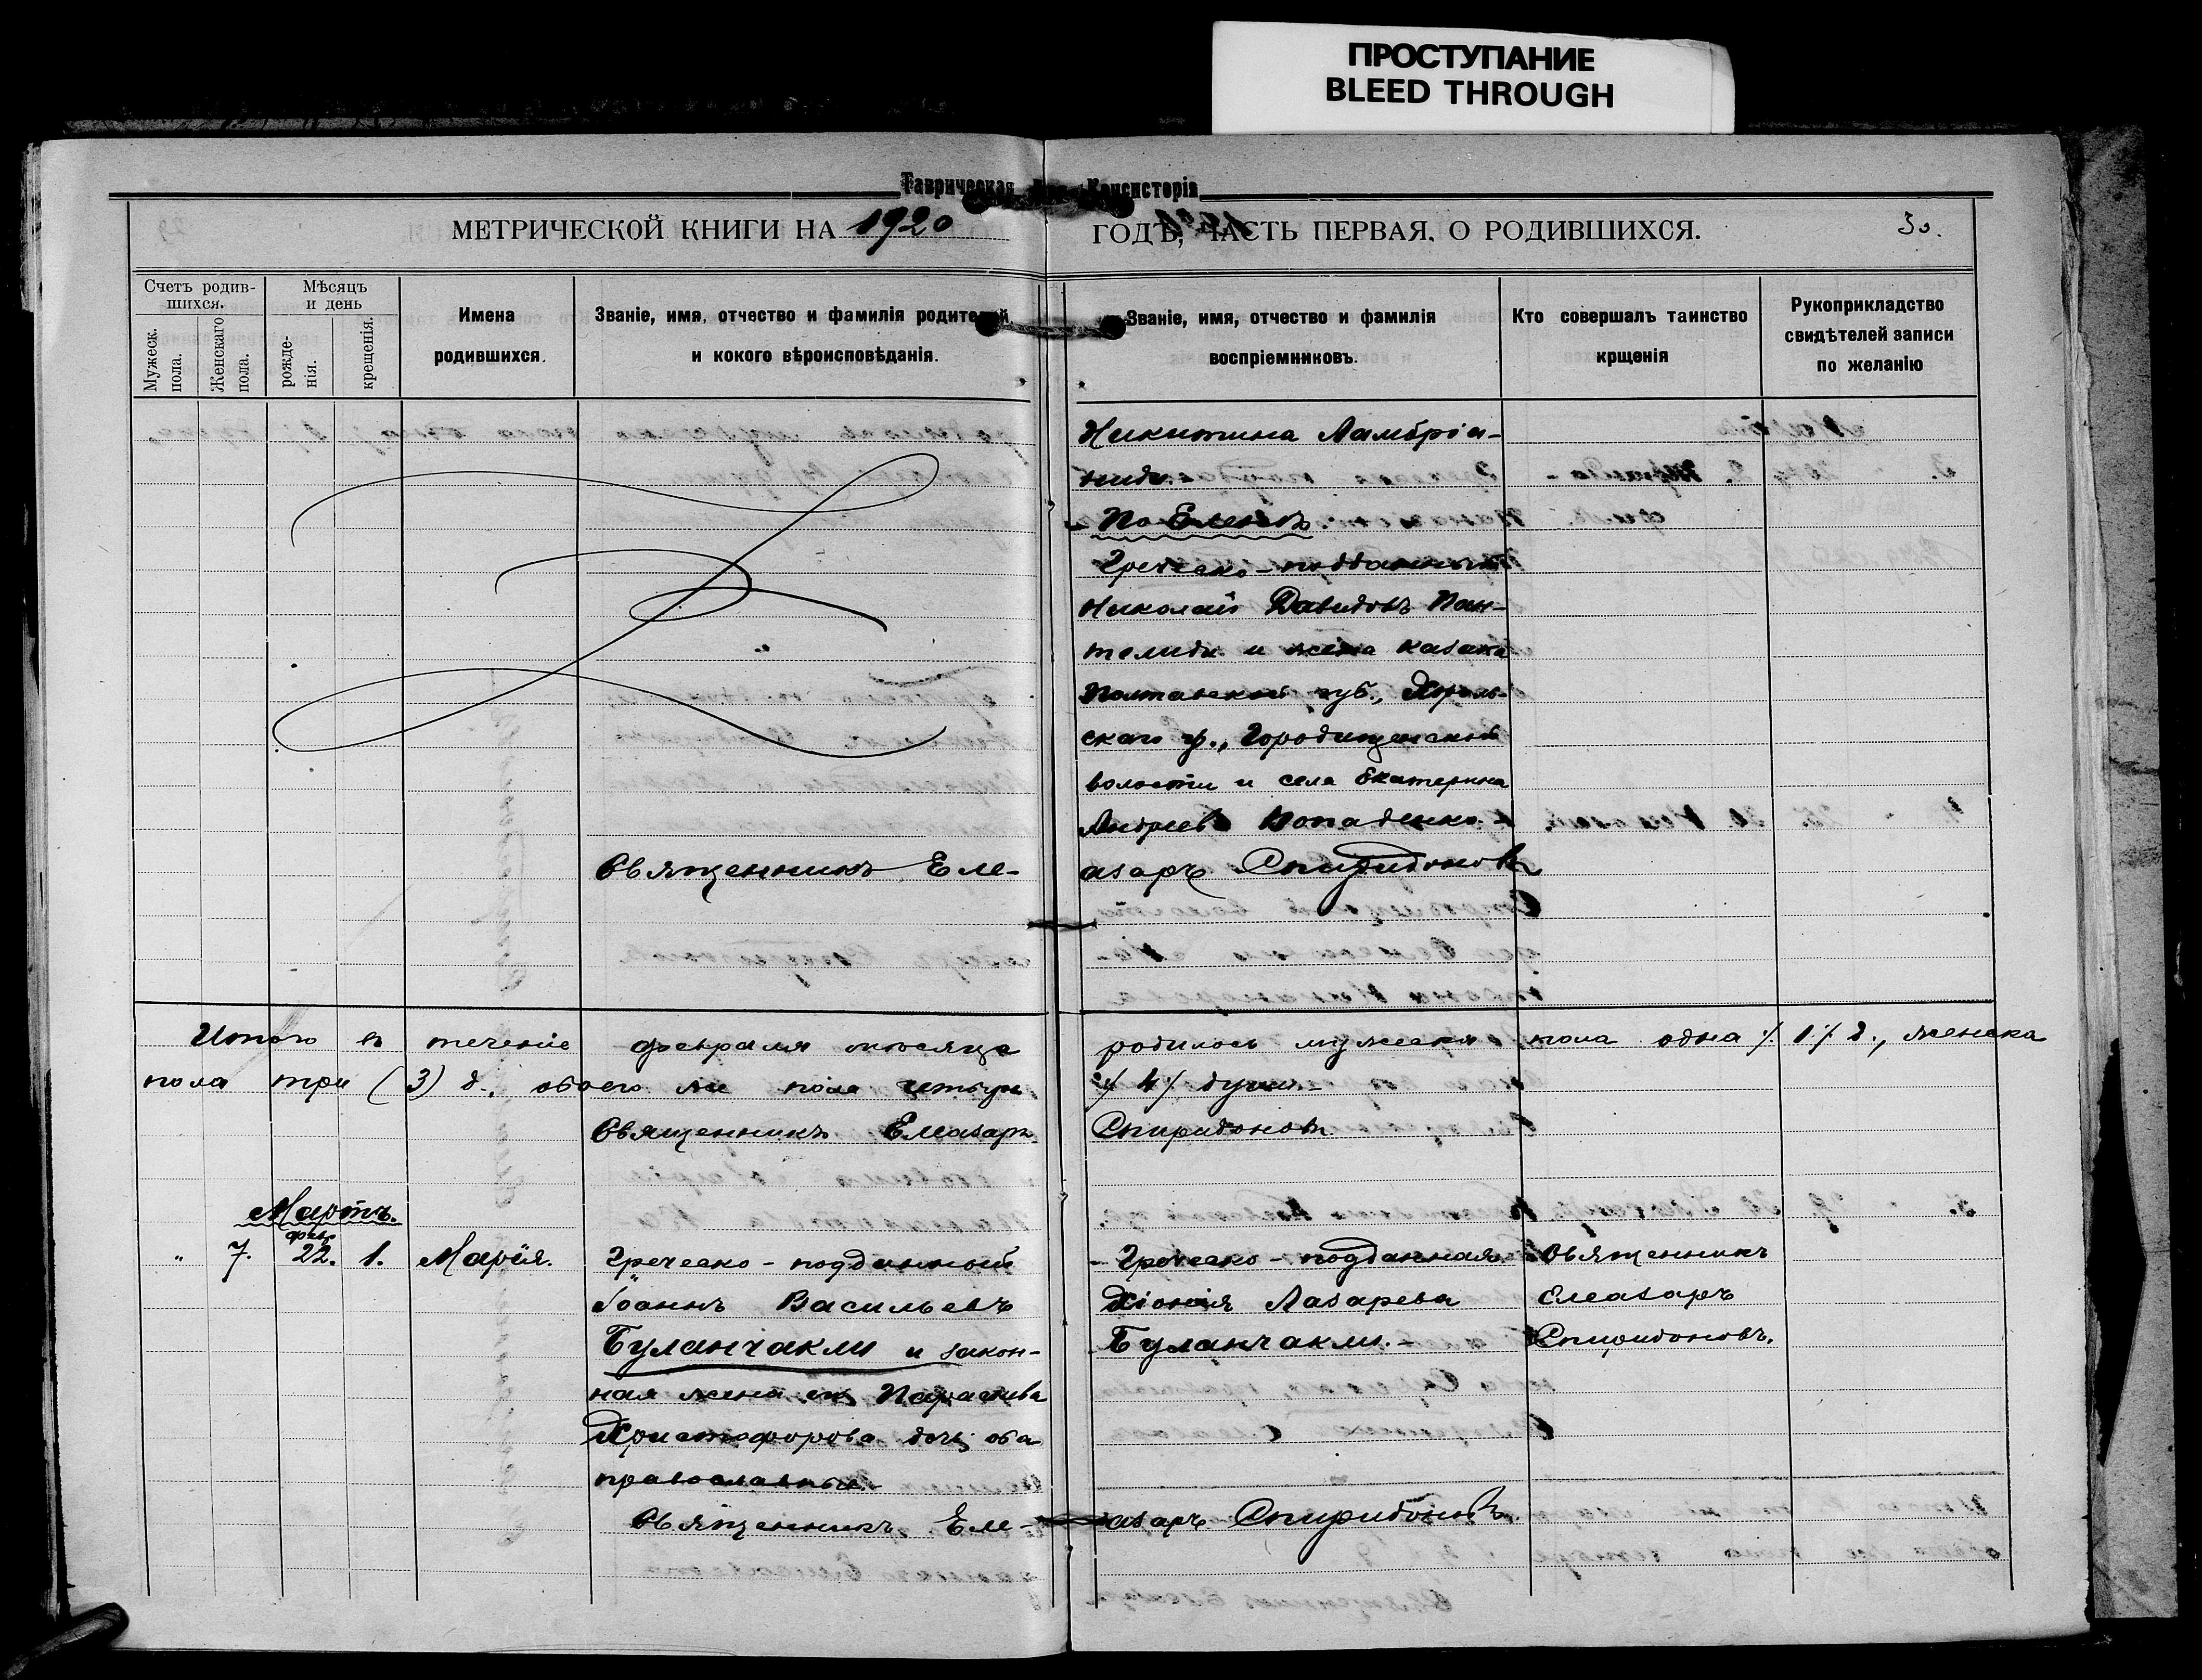 ПРОСТУПАНИЕ
BLEED THROUGH
Таврическая Консисторія
МЕТРИЧЕСКОЙ КНИГИ НА 1920 ГОДЪ, ЧАСТЬ ПЕРВАЯ, О РОДИВШИХСЯ. 30.
Счетъ родив-
шихся.
Мужеск.
пола.
Женскаго
пола.
Мѣсяцъ
и день
рожде-
нія.
крещенія.
Имена
родившихся.
Званіе, имя, отчество и фамилія родителей,
и кокого вѣроисповѣданія.
Званіе, имя, отчество и фамилія
воспріемниковъ.
Кто совершалъ таинство
крщенія
Рукоприкладство
свидѣтелей записи
по желанію
Никитина Ламбріа-
ниди.
По Еленѣ
Греческо-подданный
Николай Давидовъ Пан-
телиди и жена казака
Полтавской губ., Хороль-
скаго у., Городищенской
волости и села Екатерина
Андреева
Священникъ Еле-
азаръ Спиридоновъ
Итого въ теченіе февраля мѣсяца родилось мужеска пола одна /1/ д., женска
пола три (3) д., обоего же пола четыре /4/ души.-
Священникъ Елеазаръ Спиридоновъ
Мартъ.
февр
" 7. 22. 1. Марія.
Греческо-подданный
Іоаннъ Васильевъ
Буланчакли и закон-
ная жена его Параскева
Христофорова дочь, оба
православные.
Священникъ Еле-
Греческо-подданная
Хіонія Лазарева
Буланчакли.-
азаръ Спиридоновъ.
Священникъ
Елеазаръ
Спиридоновъ.